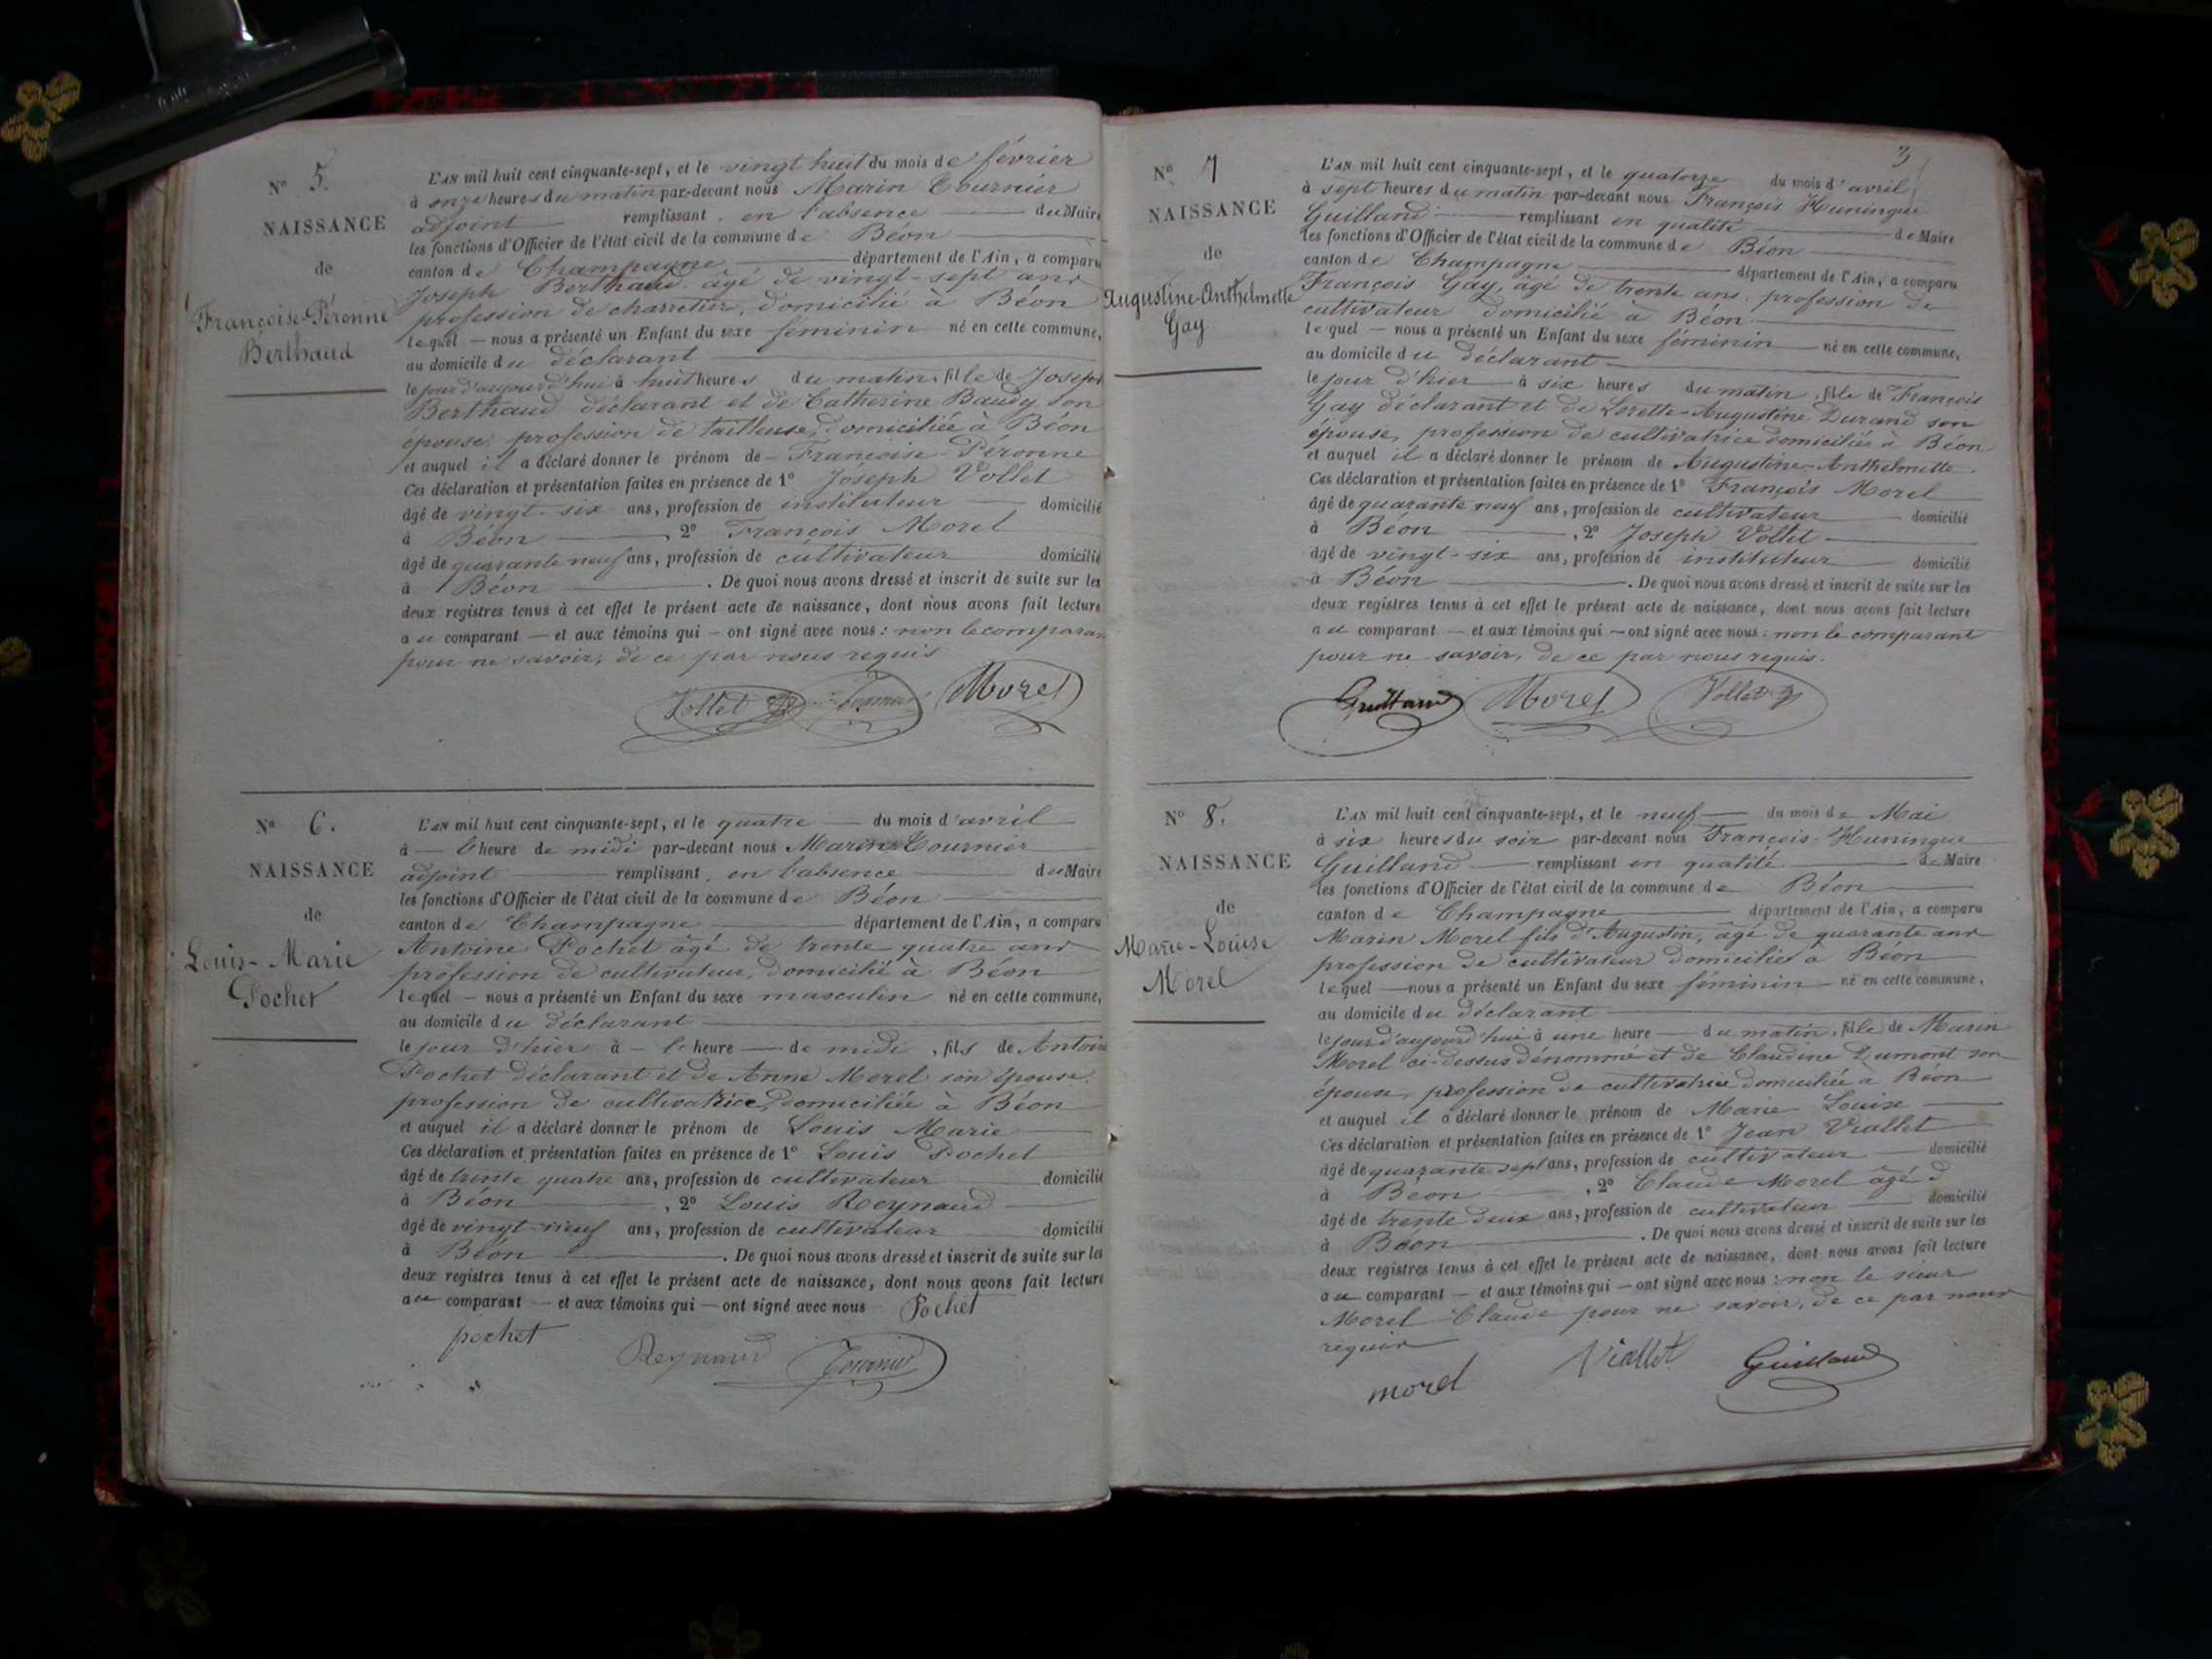 N° 5.
NAISSANCE
de
Françoise-Péronne
Berthaud
L'AN mil huit cent cinquante-sept, et le vingt huit du mois de février
à onze heures du matin par-devant nous Marin Tournier
adjoint remplissant, en l'absence du Maire
les fonctions d'Officier de l'état civil de la commune de Béon
canton de Champagne département de l'Ain, a comparu
Joseph Berthaud âgé de vingt-sept ans
profession de charretier, domicilié à Béon
lequel — nous a présenté un Enfant du sexe féminin né en cette commune,
au domicile du déclarant
le jour d'aujourd'hui à huit heures du matin, fille de Joseph
Berthaud déclarant et de Catherine Baudy son
épouse, profession de tailleuse, domiciliée à Béon
et auquel il a déclaré donner le prénom de Françoise-Péronne
Ces déclaration et présentation faites en présence de 1° Joseph Vollet
âgé de vingt-six ans, profession de instituteur domicilié
à Béon, 2° François Morel
âgé de quarante neuf ans, profession de cultivateur domicilié
à Béon. De quoi nous avons dressé et inscrit de suite sur les
deux registres tenus à cet effet le présent acte de naissance, dont nous avons fait lecture
au comparant — et aux témoins qui — ont signé avec nous: non le comparan
pour ne savoir, de ce par nous requis
Vollet Tournier Morel
N° 6.
NAISSANCE
de
Louis-Marie
Pochet
L'AN mil huit cent cinquante-sept, et le quatre — du mois d'avril
à — l'heure de midi par-devant nous Marin Tournier
adjoint remplissant, en l'absence du Maire
les fonctions d'Officier de l'état civil de la commune de Béon
canton de Champagne département de l'Ain, a comparu
Antoine Pochet âgé de trente quatre ans
profession de cultivateur, domicilié à Béon
lequel — nous a présenté un Enfant du sexe masculin né en cette commune,
au domicile du déclarant
le jour d'hier à — l'heure — de midi, fils de Antoine
Pochet déclarant et de Anne Morel son épouse,
profession de cultivatrice, domiciliée à Béon
et auquel il a déclaré donner le prénom de Louis Marie
Ces déclaration et présentation faites en présence de 1° Louis Pochet
âgé de trente quatre ans, profession de cultivateur domicilié
à Béon, 2° Louis Reynaud
âgé de vingt-neuf ans, profession de cultivateur domicilié
à Béon. De quoi nous avons dressé et inscrit de suite sur les
deux registres tenus à cet effet le présent acte de naissance, dont nous avons fait lecture
au comparant — et aux témoins qui — ont signé avec nous Pochet
pochet Reynaud Tournier
3
N° 7
NAISSANCE
de
Augustine-Anthelmette
Gay
L'AN mil huit cent cinquante-sept, et le quatorze du mois d'avril
à sept heures du matin par-devant nous François Huningue
Guilland remplissant en qualité de Maire
les fonctions d'Officier de l'état civil de la commune de Béon
canton de Champagne département de l'Ain, a comparu
François Gay, âgé de trente ans, profession de
cultivateur domicilié à Béon
lequel — nous a présenté un Enfant du sexe féminin né en cette commune,
au domicile du déclarant
le jour d'hier à six heures du matin, fille de François
Gay déclarant et de Lorette-Augustine Durand son
épouse, profession de cultivatrice domiciliée à Béon
et auquel il a déclaré donner le prénom de Augustine-Anthelmette.
Ces déclaration et présentation faites en présence de 1° François Morel
âgé de quarante neuf ans, profession de cultivateur domicilié
à Béon, 2° Joseph Vollet
âgé de vingt-six ans, profession de instituteur domicilié
à Béon. De quoi nous avons dressé et inscrit de suite sur les
deux registres tenus à cet effet le présent acte de naissance, dont nous avons fait lecture
au comparant — et aux témoins qui — ont signé avec nous: non le comparant
pour ne savoir, de ce par nous requis.
Guilland Morel Vollet
N° 8.
NAISSANCE
de
Marie-Louise
Morel
L'AN mil huit cent cinquante-sept, et le neuf — du mois de Mai
à six heures du soir par-devant nous François-Huningue
Guilland remplissant en qualité de Maire
les fonctions d'Officier de l'état civil de la commune de Béon
canton de Champagne département de l'Ain, a comparu
Marin Morel fils d'Augustin, âgé de quarante ans
profession de cultivateur domicilié à Béon
lequel — nous a présenté un Enfant du sexe féminin né en cette commune,
au domicile du déclarant
le jour d'aujourd'hui à une heure — du matin, fille de Marin
Morel ci-dessus dénommé et de Claudine Dumont son
épouse, profession de cultivatrice domiciliée à Béon
et auquel il a déclaré donner le prénom de Marie Louise
Ces déclaration et présentation faites en présence de 1° Jean Viallet
âgé de quarante sept ans, profession de cultivateur domicilié
à Béon, 2° Claude Morel âgé d
âgé de trente deux ans, profession de cultivateur domicilié
à Béon. De quoi nous avons dressé et inscrit de suite sur les
deux registres tenus à cet effet le présent acte de naissance, dont nous avons fait lecture
au comparant — et aux témoins qui — ont signé avec nous: non le sieur
Morel Claude pour ne savoir, de ce par nous
requis
morel Viallet Guilland